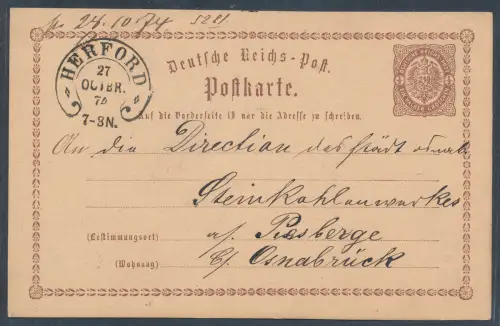 24.10.74 5281
HERFORD
27
OCTBR.
74
7-8N.
Deutsche Reichs-Post.
Postkarte.
Auf die Vorderseite ist nur die Adresse zu schreiben.
An die Direction des Städt
Steinkohlenwerkes
(Bestimmungsort) a/ Piesberge
(Wohnung) b/ Osnabrück